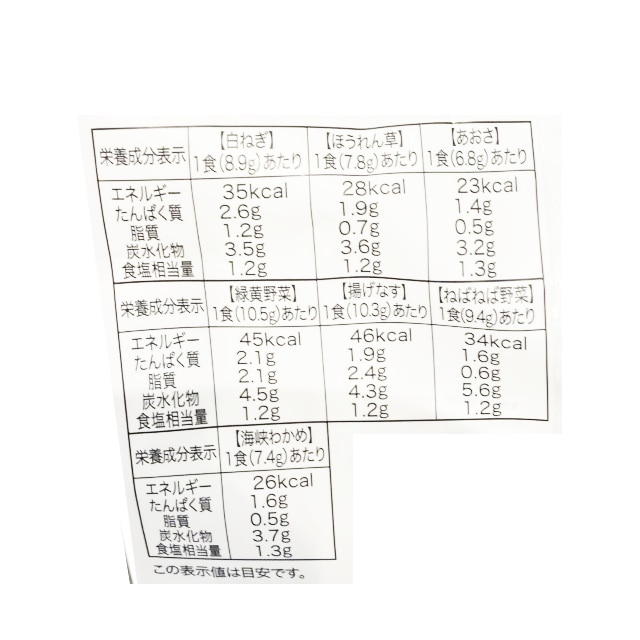 栄養成分表示 【白ねぎ】 1食(8.9g)あたり 【ほうれん草】 1食(7.8g)あたり 【あおさ】 1食(6.8g)あたり
エネルギー 35kcal 28kcal 23kcal
たんぱく質 2.6g 1.9g 1.4g
脂質 1.2g 0.7g 0.5g
炭水化物 3.5g 3.6g 3.2g
食塩相当量 1.2g 1.2g 1.3g
栄養成分表示 【緑黄野菜】 1食(10.5g)あたり 【揚げなす】 1食(10.3g)あたり 【ねばねば野菜】 1食(9.4g)あたり
エネルギー 45kcal 46kcal 34kcal
たんぱく質 2.1g 1.9g 1.6g
脂質 2.1g 2.4g 0.6g
炭水化物 4.5g 4.3g 5.6g
食塩相当量 1.2g 1.2g 1.2g
栄養成分表示 【海峡わかめ】 1食(7.4g)あたり
エネルギー 26kcal
たんぱく質 1.6g
脂質 0.5g
炭水化物 3.7g
食塩相当量 1.3g
この表示値は目安です。